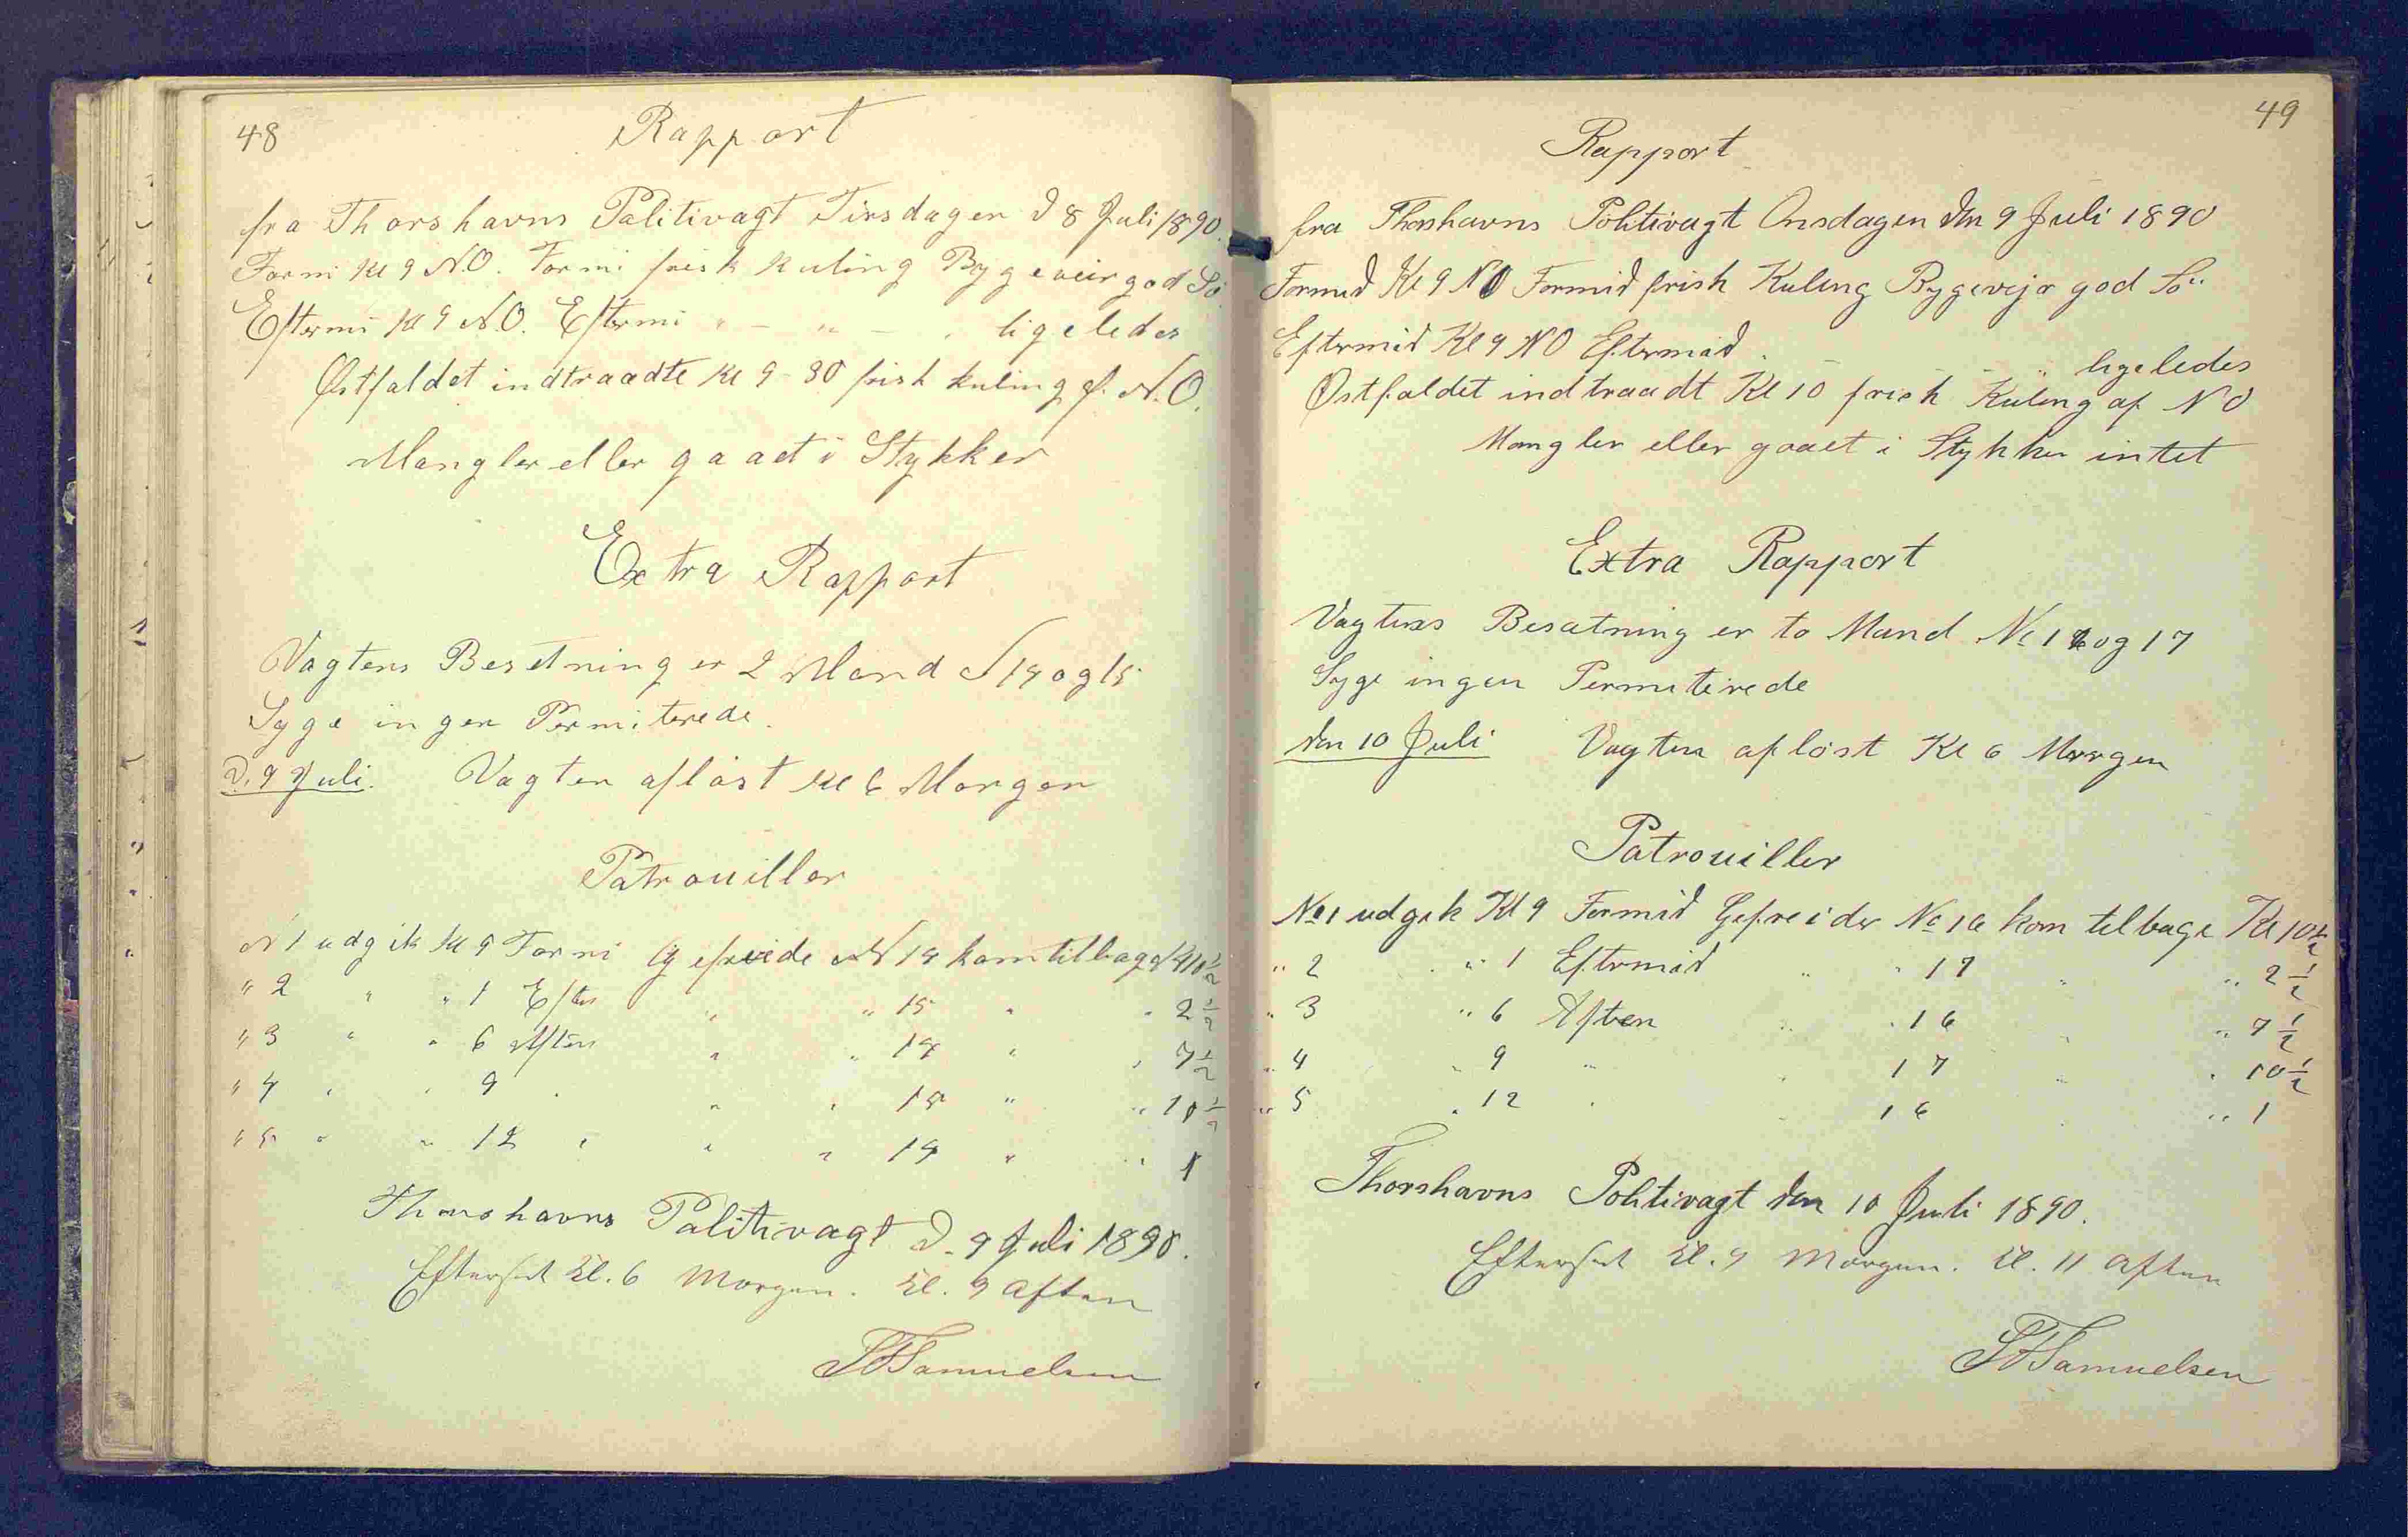 48
Rapport
fra Thorshavns Politivagt Tirsdagen d 8 Juli 1890.
Formi Kl 9 N.O. Formi frisk kuling Bygeveir god Sö
Eftermi Kl 9 N.O. Eftermi " - " - . ligeledes
Østfaldet indtraadte Kl 9-30 frisk kuling af N.O.
Mangler eller gaaet i Stykker
Extra Rapport
Vagtens Besetning er 2 Mand N 14 og 15
Syge ingen Permiterede.
D. 9 Juli. Vagten aflöst Kl 6 Morgen
Patrouiller
N 1 udgik Kl 9 Formi Gefreide N 14 kom tilbage Kl 10 1/2
" 2 " " 1 Efter " " 15 " " 2 1/2
" 3 " " 6 Aften " " 14 " " 7 1/2
" 4 " " 9 " " " 15 " " 10 1/2
" 5 " " 12 " " " 14 " " 1
Thorshavns Politivagt D. 9 Juli 1890.
Efterset Kl. 6 Morgen. Kl. 9 Aften
Samuelsen
49
Rapport
fra Thorshavns Politivagt Onsdagen den 9 Juli 1890
Formid Kl 9 NO Formid frisk Kuling Bygevejr god Sö
Eftermid Kl 9 NO Eftermid " ligeledes
Østfaldet indtraadt Kl 10 frisk Kuling af NO
Mangler eller gaaet i Stykker intet
Extra Rapport
Vagtens Besætning er to Mand No 16 og 17
Syge ingen Permiterede
den 10 Juli Vagten aflöst Kl 6 Morgen
Patrouiller
No 1 udgik Kl 9 Formid Gefreider No 16 kom tilbage Kl 10 1/2
" 2 " 1 Eftermid " " 17 " " 2 1/2
" 3 " 6 Aften " " 16 " " 7 1/2
" 4 " 9 " " 17 " " 10 1/2
" 5 " 12 " 16 " " 1
Thorshavns Politivagt den 10 Juli 1890.
Efterset Kl. 9 Morgen. Kl. 11 Aften
Samuelsen